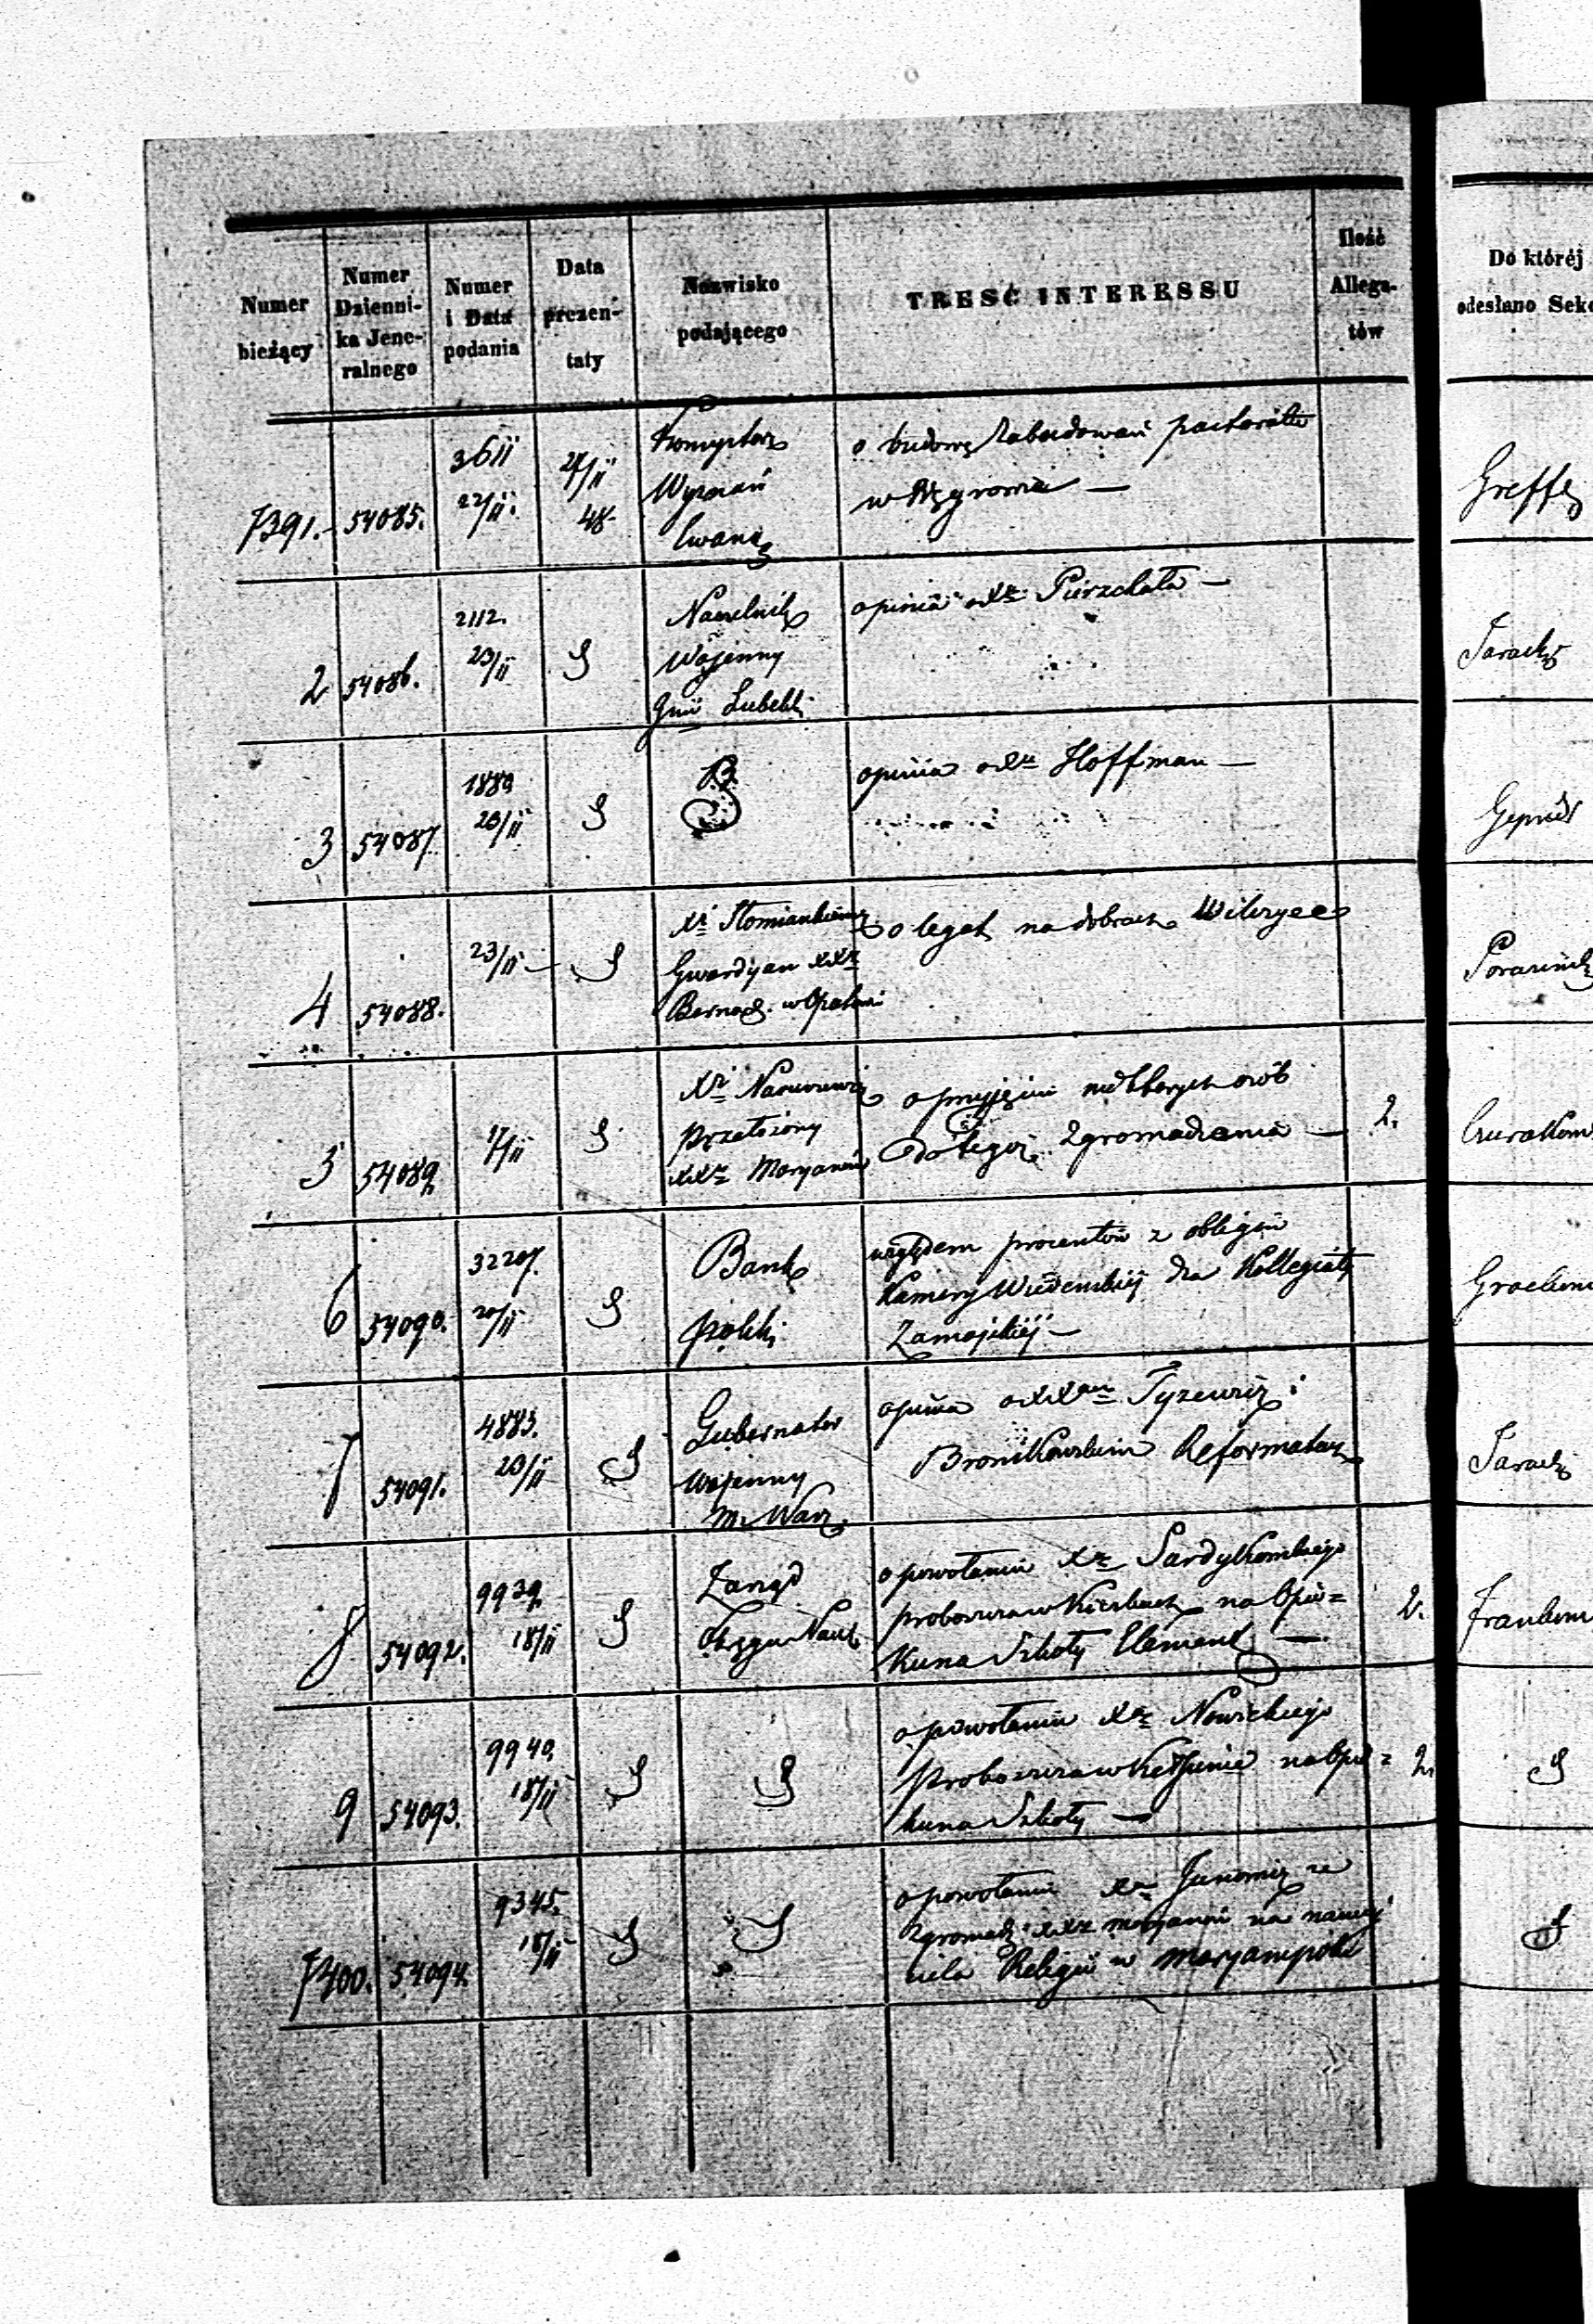 Numer bieżący
Numer Dzienni-
ka Jene-
ralnego
Numer
i Data
podania
Data
prezen-
taty
Nazwisko
podającego
TREŚĆ INTERESSU
Ilość
Allega-
tów
Do któréj
odesłano Sek
7391. 54085.
3611
22/11.
24/11
48.
Konsystorz
Wyznań
Ewang
o budowę zabudowań pastoratu
w Węgrowie —
Greffe
2 54086.
2112.
23/11
Naczelnik
Wojenny
Gnii Lubelsk
opinia o Xe Pierzchała —
Tarach
3 54087.
1880
20/11
opinia o Xe Hoffman —
4 54088.
23/11
Xi Słomiankiewicz
Gwardyan XXi
Bernard. w Opatowi
o legat na dobrach Wilczyce
5 54089.
17/11
Xi
Przełożony
XXi Maryanów
o przyjęciu niektórych osób
do tegoż Zgromadzenia —
2.
6 54090.
32207.
20/11
Bank
Polski
względem procentów z obligów
Kamery Wiedeńskiej dla Kollegiaty
Zamojskiéj —
7 54091.
4883.
20/11
Gubernator
Wojenny
M. Warz.
opinia o XX Tyzewicz i
Bronikowskim Reformatach
Tarach
8 54092.
9939.
18/11
Zarząd
Okręgu Nauk
o powołaniu Xa Sardykowskiego
proboszcza w Kierlach na Opie=
kuna Szkoły Element —
2.
9 54093.
9940.
18/11
o powołaniu Xa Nowickiego
Proboszcza w na Opie=
kuna Szkoły —
2.
7400. 54094.
9345.
18/11
o powołaniu Xa ze
zgromadz: XX Maryanów na nauczy
ciela Religii w Maryampolu